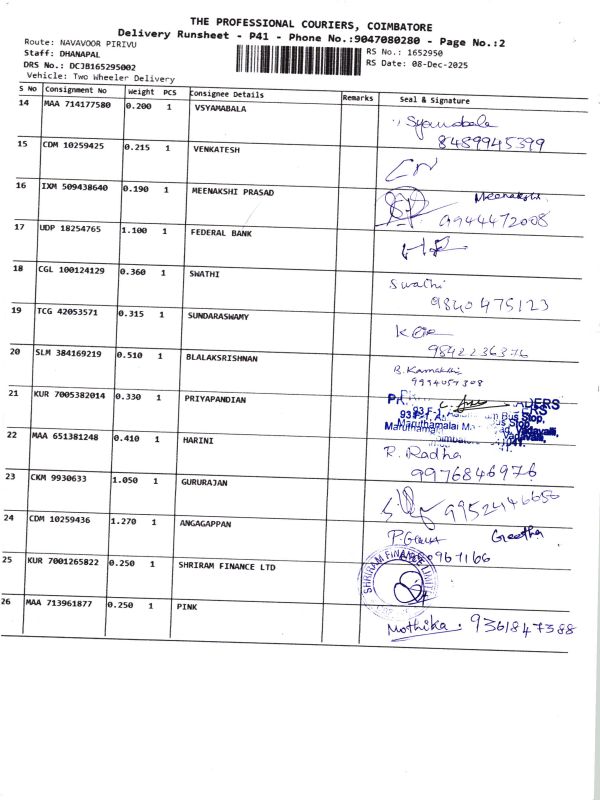 THE PROFESSIONAL COURIERS, COIMBATORE
Delivery Runsheet - P41 - Phone No.:9047080280 - Page No.:2
Route: NAVAVOOR PIRIVU
Staff: DHANAPAL
RS No.: 1652950
DRS No.: DCJB165295002
RS Date: 08-Dec-2025
Vehicle: Two Wheeler Delivery
S No Consignment No Weight PCS Consignee Details Remarks Seal & Signature
14 MAA 714177580 0.200 1 VSYAMABALA Syamabala
8489945399
15 CDM 10259425 0.215 1 VENKATESH
16 IXM 509438640 0.190 1 MEENAKSHI PRASAD Meenakshi
9944472008
17 UDP 18254765 1.100 1 FEDERAL BANK
18 CGL 100124129 0.360 1 SWATHI Swathi
9840475123
19 TCG 42053571 0.315 1 SUNDARASWAMY
9842236376
20 SLM 384169219 0.510 1 BLALAKSRISHNAN B. Kamakshi
9994057308
21 KUR 7005382014 0.330 1 PRIYAPANDIAN
22 MAA 651381248 0.410 1 HARINI R. Radha
9976846976
23 CKM 9930633 1.050 1 GURURAJAN 9952146656
24 CDM 10259436 1.270 1 ANGAGAPPAN Geetha
25 KUR 7001265822 0.250 1 SHRIRAM FINANCE LTD SHRIRAM FINANCE LIMITED
26 MAA 713961877 0.250 1 PINK Mothika. 9361847388